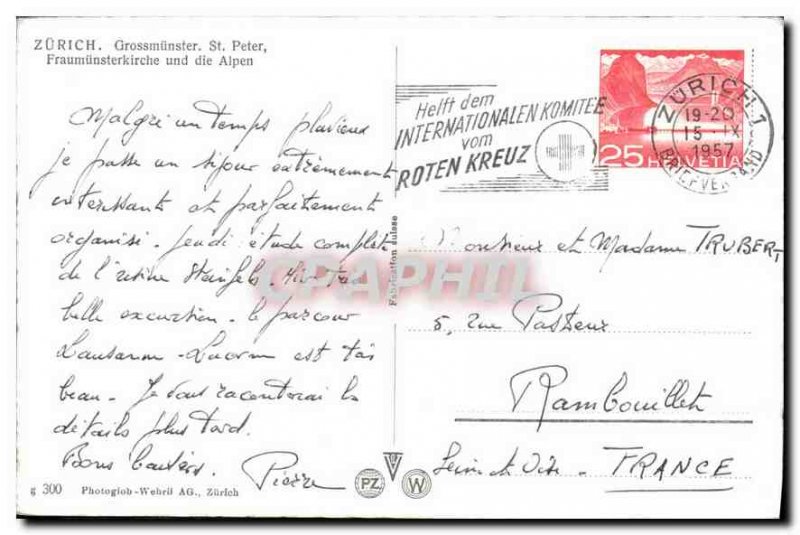 ZÜRICH. Grossmünster. St. Peter,
Fraumünsterkirche und die Alpen
Malgré un temps pluvieux
je passe un séjour extrêmement
intéressant et parfaitement
organisé. Jeudi étude complète
de l'usine Steinfels. Hier très
belle excursion. le parcour
Lausanne - Lucern est très
beau. Je vous raconterai les
détails plus tard.
Bons baisers. Pierre
g 300 Photoglob-Wehrli AG., Zürich
Fabrication suisse
PZ W
Helft dem
INTERNATIONALEN KOMITEE
vom
ROTEN KREUZ
ZÜRICH 1
19-20
15. IX
1957
BRIEFVERSAND
25 HELVETIA
Monsieur et Madame TRUBERT
5, rue Pasteur
Rambouillet
Seine et Oise. FRANCE
CPAPHIL